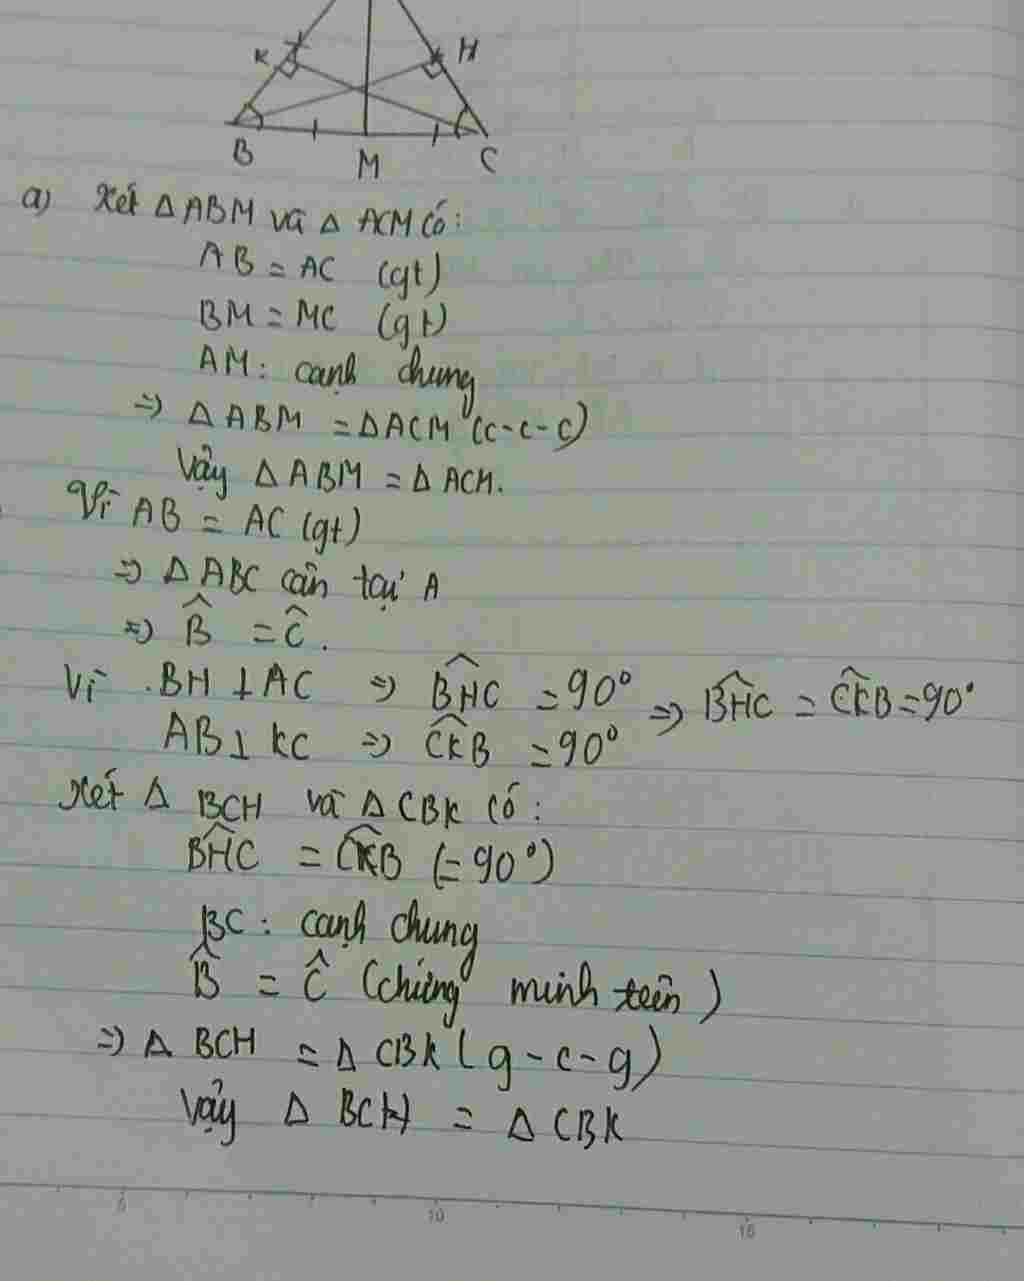 K H
B M C
a) Xét Δ ABM và Δ ACM có:
AB = AC (gt)
BM = MC (gt)
AM: cạnh chung
=> Δ ABM = Δ ACM (c-c-c)
Vậy Δ ABM = Δ ACM.
Vì AB = AC (gt)
=> Δ ABC cân tại A
=> B̂ = Ĉ.
Vì BH ⊥ AC => B̂HC = 90° => B̂HC = ĈKB = 90°
AB ⊥ KC => ĈKB = 90°
Xét Δ BCH và Δ CBK có:
B̂HC = ĈKB (= 90°)
BC: cạnh chung
B̂ = Ĉ (chứng minh trên)
=> Δ BCH = Δ CBK (g-c-g)
Vậy Δ BCH = Δ CBK
5 10 15